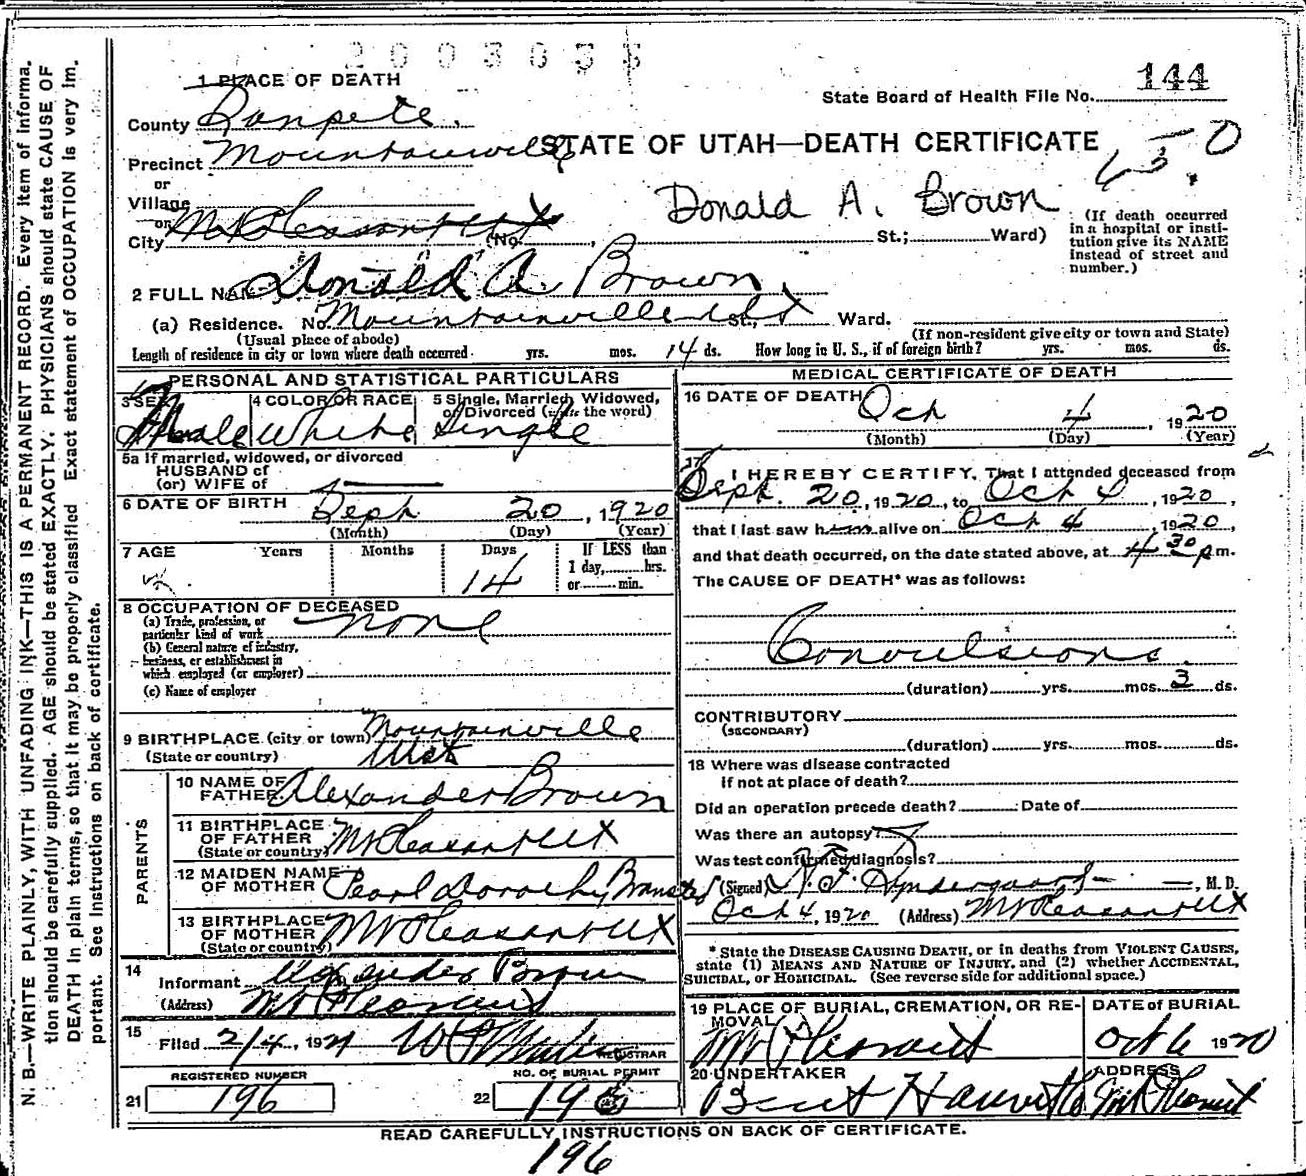 2003035
1 PLACE OF DEATH
144
State Board of Health File No.
County Sanpete.
STATE OF UTAH—DEATH CERTIFICATE
Precinct Mountainville
or
Village
Donald A. Brown
or
City Mt Pleasant Ut (No. , St.; Ward)
(If death occurred
in a hospital or insti-
tution give its NAME
instead of street and
number.)
2 FULL NAME Donald A. Brown
(a) Residence. No. Mountainville Ut St., Ward.
(Usual place of abode)
(If non-resident give city or town and State)
Length of residence in city or town where death occurred yrs. mos. 14 ds. How long in U. S., if of foreign birth? yrs. mos. ds.
PERSONAL AND STATISTICAL PARTICULARS
3 SEX Male
4 COLOR OR RACE White
5 Single, Married, Widowed,
or Divorced (write the word)
Single
5a If married, widowed, or divorced
HUSBAND of
(or) WIFE of
6 DATE OF BIRTH Sept 20, 1920
(Month) (Day) (Year)
7 AGE Years Months Days If LESS than
1 day, hrs.
or min.
14
8 OCCUPATION OF DECEASED
(a) Trade, profession, or
particular kind of work none
(b) General nature of industry,
business, or establishment in
which employed (or employer)
(c) Name of employer
9 BIRTHPLACE (city or town) Mountainville
(State or country) Utah
PARENTS
10 NAME OF
FATHER Alexander Brown
11 BIRTHPLACE
OF FATHER Mt Pleasant Ut
(State or country)
12 MAIDEN NAME
OF MOTHER Pearl Dorothy
13 BIRTHPLACE
OF MOTHER Mt Pleasant Ut
(State or country)
14
Informant Alexander Brown
(Address) Mt Pleasant
15
Filed 2/4, 1921
REGISTRAR
REGISTERED NUMBER
21 196
NO. OF BURIAL PERMIT
22 196
MEDICAL CERTIFICATE OF DEATH
16 DATE OF DEATH Oct 4, 1920
(Month) (Day) (Year)
17 I HEREBY CERTIFY, That I attended deceased from
Sept. 20, 1920, to Oct 4, 1920,
that I last saw him alive on Oct 4, 1920,
and that death occurred, on the date stated above, at 4 30 p m.
The CAUSE OF DEATH* was as follows:
Convulsions.
(duration) yrs. mos. 3 ds.
CONTRIBUTORY
(SECONDARY)
(duration) yrs. mos. ds.
18 Where was disease contracted
if not at place of death?
Did an operation precede death? Date of
Was there an autopsy?
Was test confirmed diagnosis?
(Signed) , M. D.
Oct 4, 1920 (Address) Mt Pleasant Ut
* State the DISEASE CAUSING DEATH, or in deaths from VIOLENT CAUSES,
state (1) MEANS AND NATURE OF INJURY, and (2) whether ACCIDENTAL,
SUICIDAL, or HOMICIDAL. (See reverse side for additional space.)
19 PLACE OF BURIAL, CREMATION, OR RE-
MOVAL
Mt Pleasant
DATE of BURIAL
Oct 6 1920
20 UNDERTAKER
ADDRESS
Mt Pleasant
READ CAREFULLY INSTRUCTIONS ON BACK OF CERTIFICATE.
196
N. B.—WRITE PLAINLY, WITH UNFADING INK—THIS IS A PERMANENT RECORD. Every item of informa-
tion should be carefully supplied. AGE should be stated EXACTLY. PHYSICIANS should state CAUSE OF
DEATH in plain terms, so that it may be properly classified Exact statement of OCCUPATION is very im-
portant. See instructions on back of certificate.